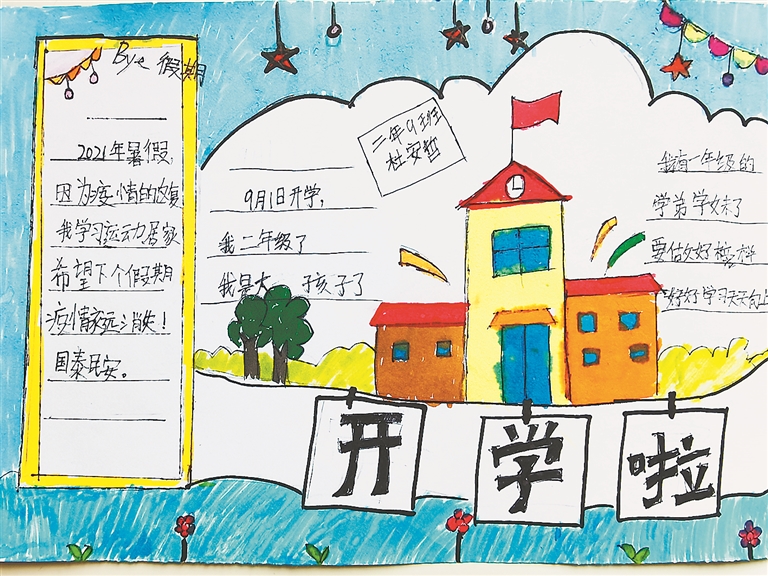 Bye 假期
2021年暑假,
因为疫情的反复
我学习运动居家
希望下个假期
疫情永远消失!
国泰民安。
二年9班
杜安哲
9月1日开学,
我二年级了
我是大孩子了
我有一年级的
学弟学妹了
要做好榜样
好好学习天天向上
开学啦